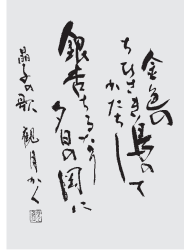 金色の
ちひさき
鳥の
かたちして
銀杏ちるなり
夕日の岡に
晶子の歌 観月かく